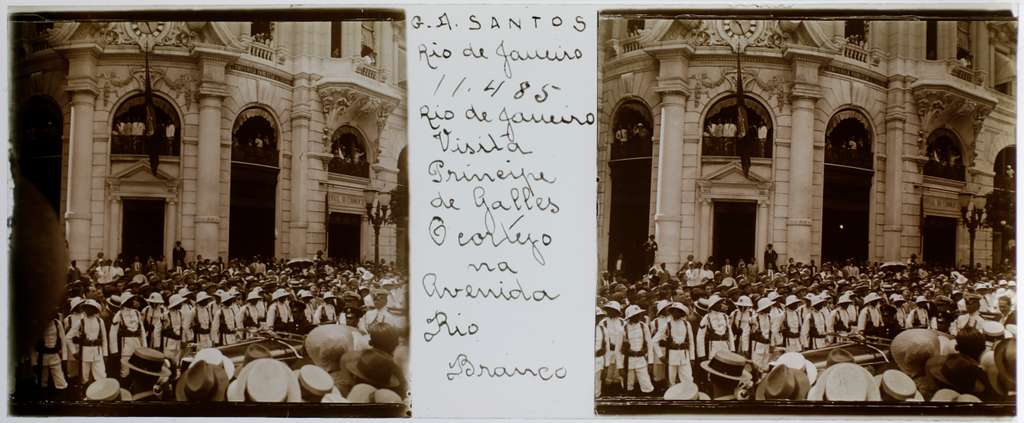 G. A. SANTOS
Rio de Janeiro
11.485
Rio de Janeiro
Visita
Principe
de Galles
O cortejo
na
Avenida
Rio
Branco